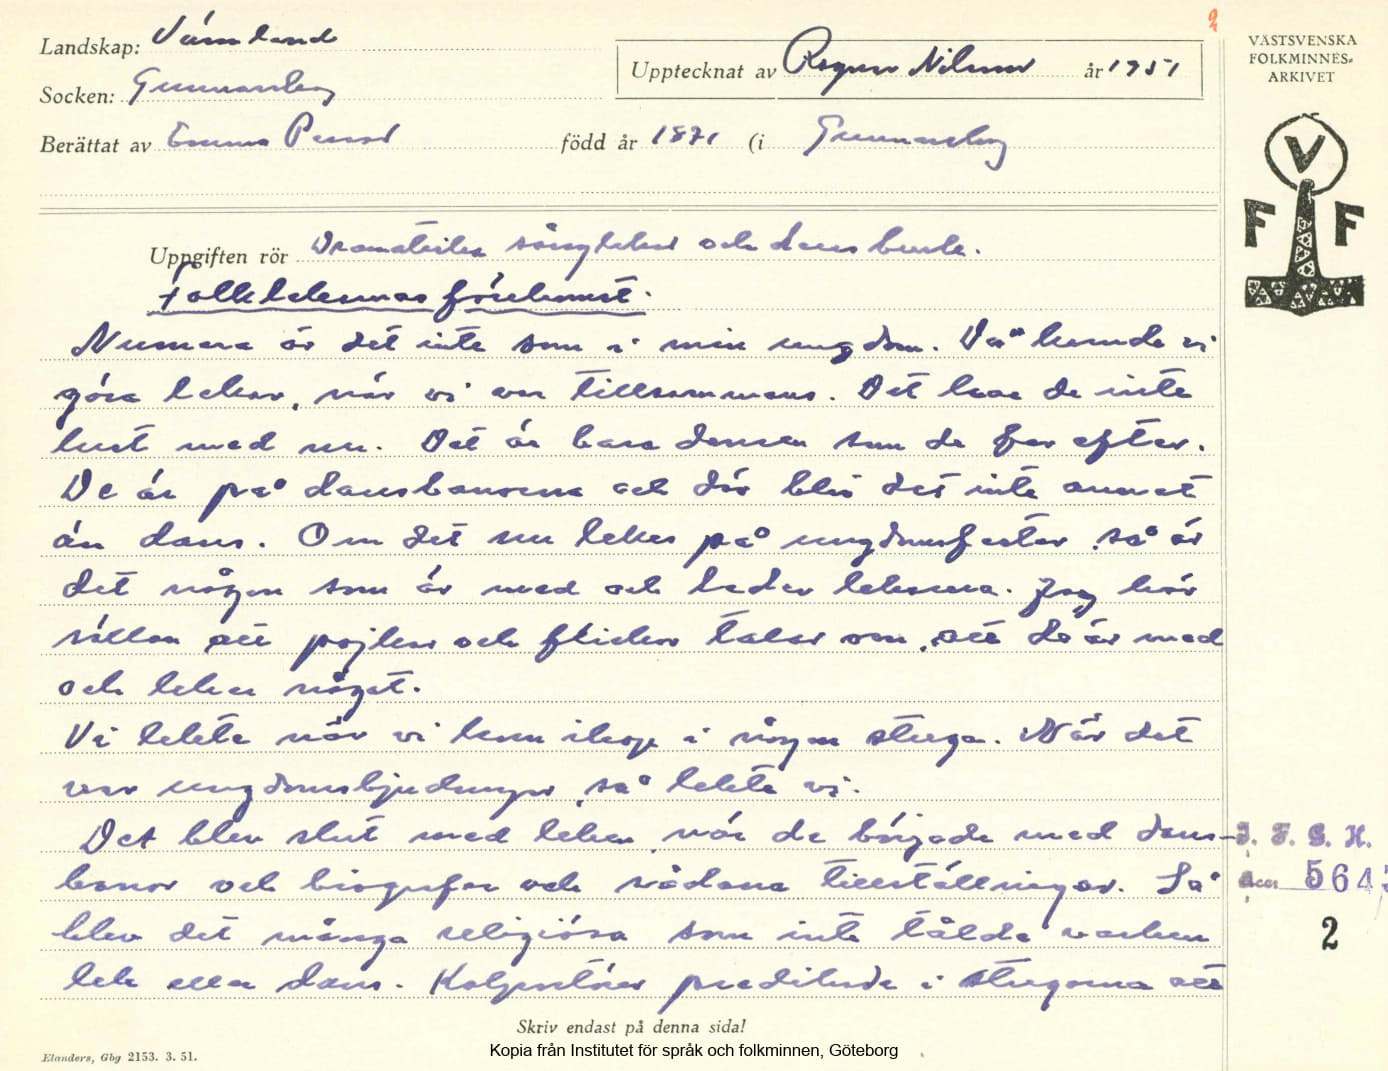 Landskap: Värmland
Upptecknat av Ragnar Nilsson år 1951
VÄSTSVENSKA
FOLKMINNES-
ARKIVET
V
F F
Socken: Gunnarskog
Berättat av Emma Persson född år 1871 (i Gunnarskog
Uppgiften rör Dramatiska sånglekar och danslevik.
Folklekarnas förekomst.
Numera är det inte som i min ungdom. Då kunde vi
göra lekar, när vi var tillsammans. Det har de inte
lust med nu. Det är bara dansen som de far efter.
De är på dansbanorna och där blir det inte annat
än dans. Om det nu lekes på ungdomsfester, så är
det någon som är med och leder lekarna. Jag hör
sällan att pojkar och flickor talar om, att de är med
och leker något.
Vi lekte när vi kom ihop i någon stuga. När det
var ungdomsbjudningar, så lekte vi.
Det blev slut med leken, när de började med dans-
banor och biografer och sådana tillställningar. Så
blev det många religiösa som inte tålde varken
lek eller dans. Kolportörer predikade i stugorna att
I. F. G. H.
Acc. 5643
2
Skriv endast på denna sida!
Elanders, Gbg 2153. 3. 51.
Kopia från Institutet för språk och folkminnen, Göteborg